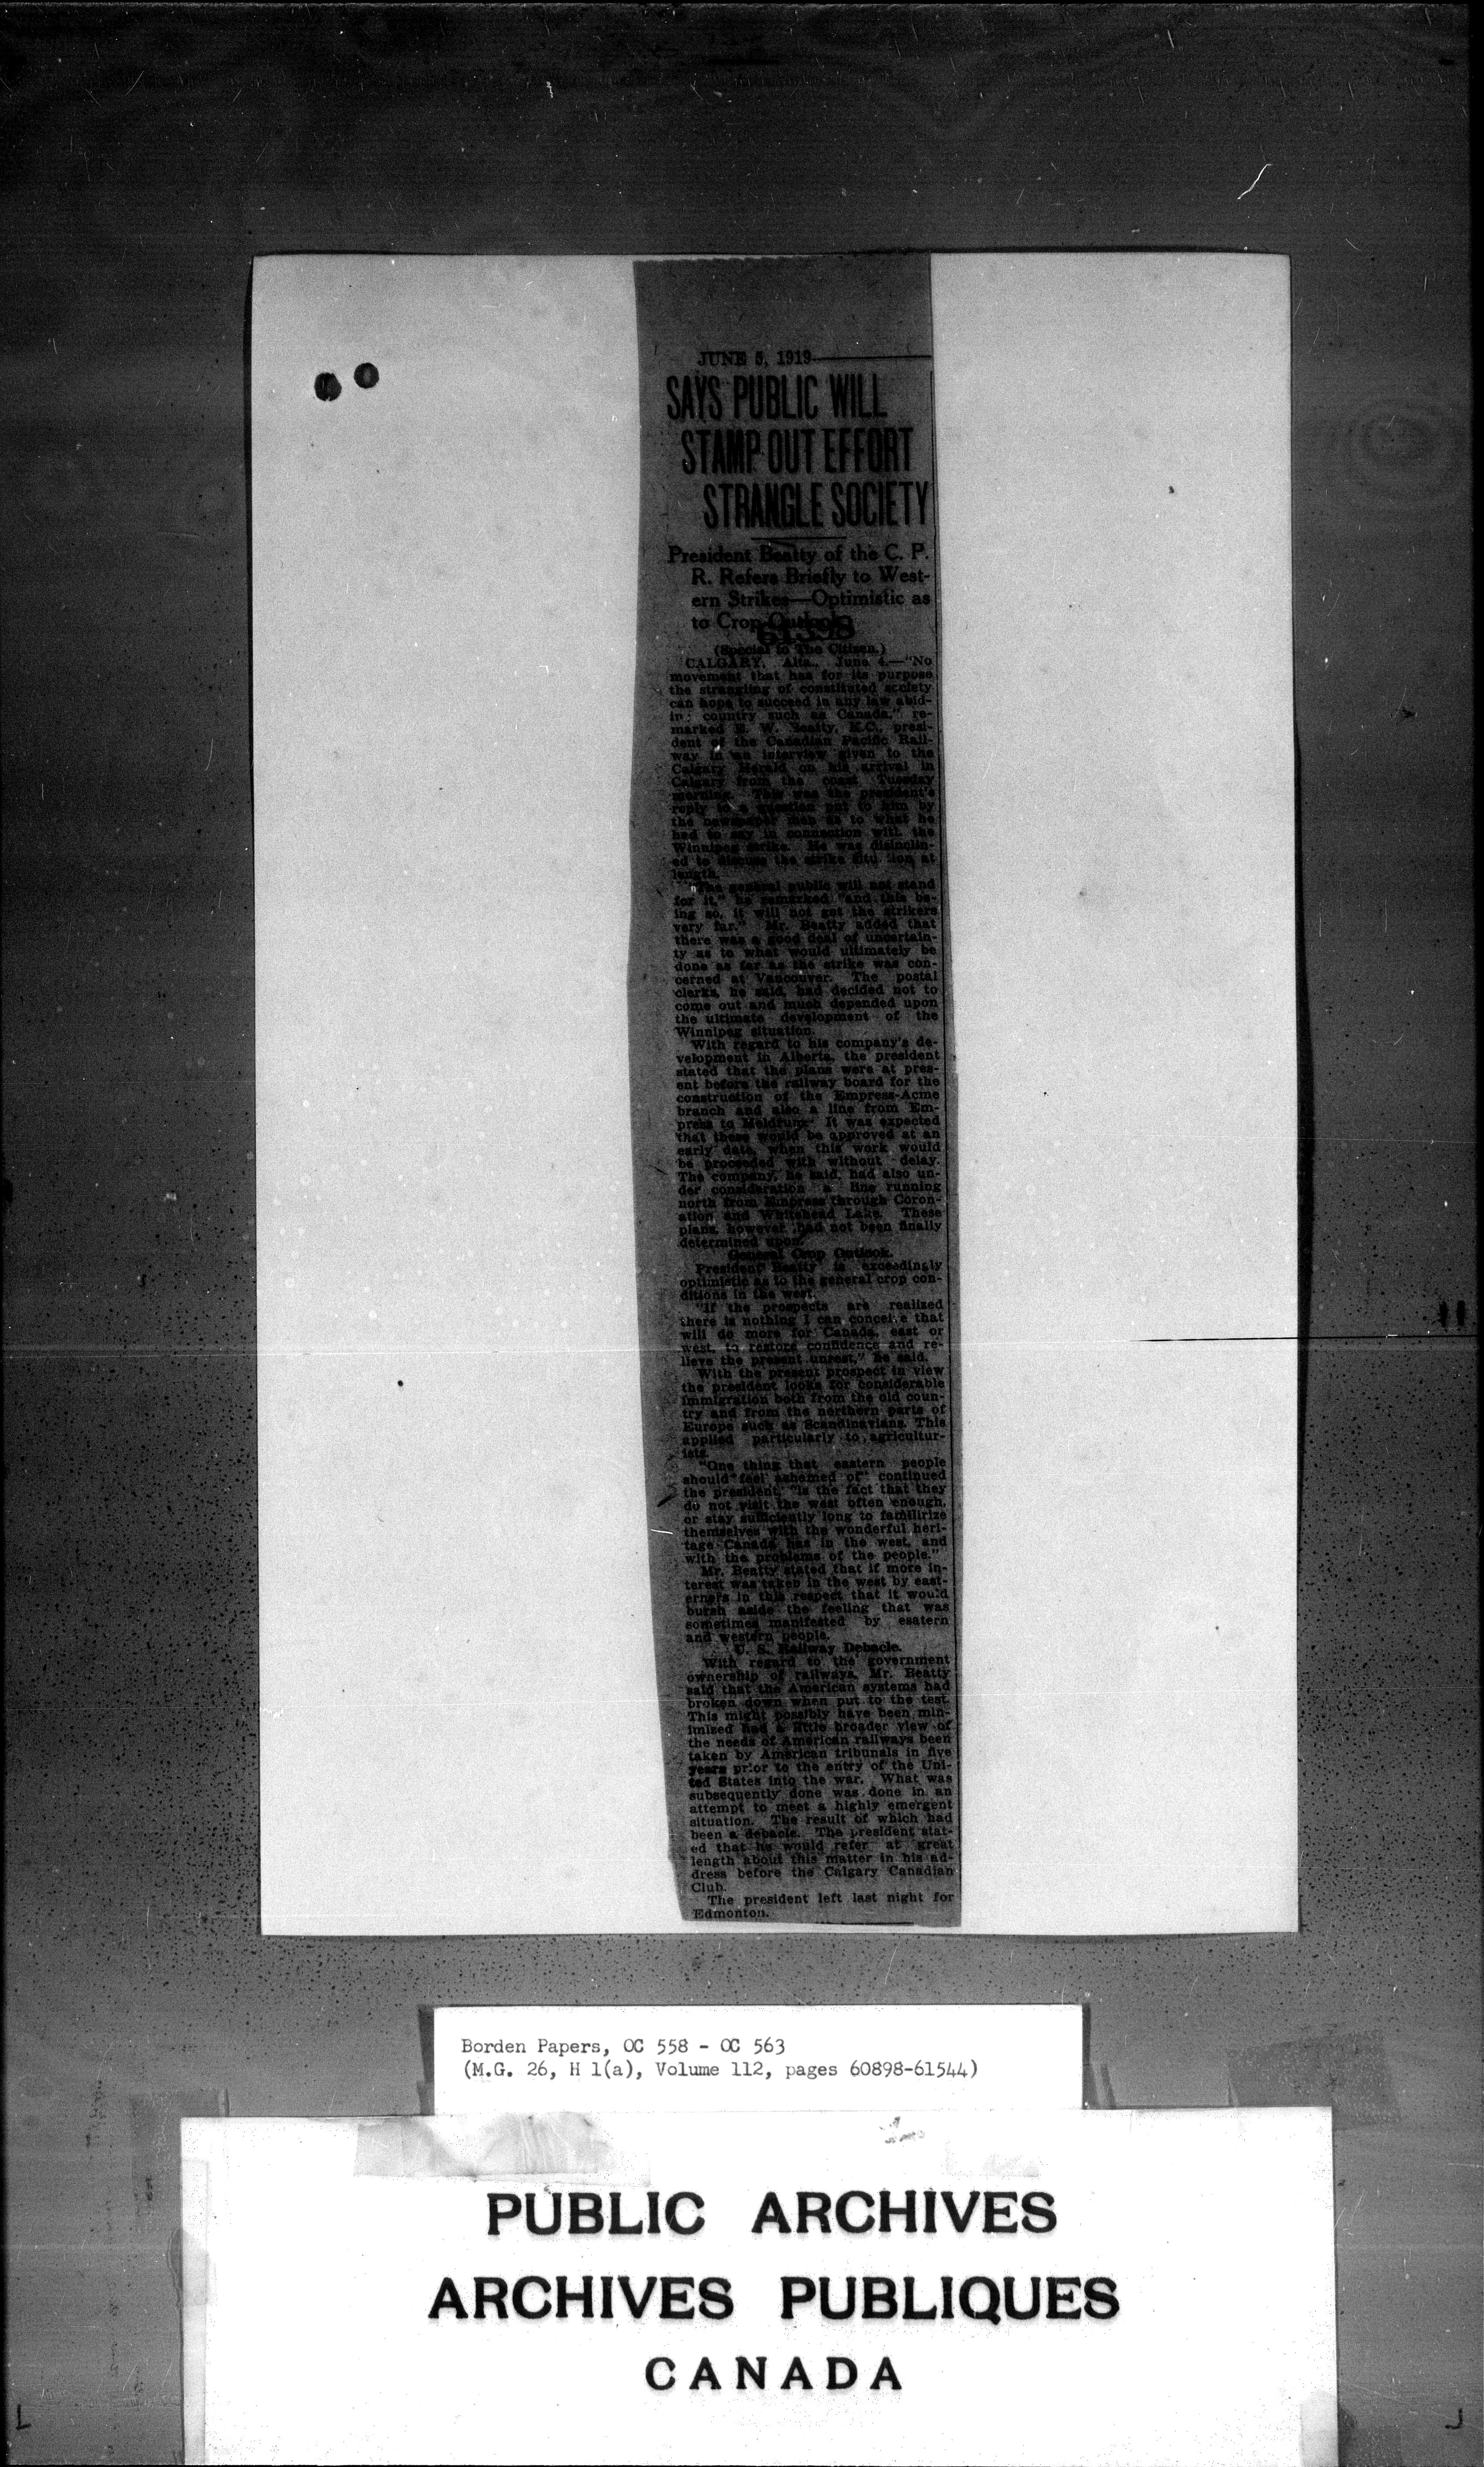 JUNE 5, 1919
SAYS PUBLIC WILL
STAMP OUT EFFORT
STRANGLE SOCIETY
President Beatty of the C. P.
R. Refers Briefly to West-
ern Strikes—Optimistic as
to Crop Outlook
61398
(Special to The Citizen.)
CALGARY, Alta., June 4.—"No
movement that has for its purpose
the strangling of constituted society
can hope to succeed in any law abid-
in: country such as Canada," re-
marked E. W. Beatty, K.C., presi-
dent of the Canadian Pacific Rail-
way in an interview given to the
Calgary Herald on his arrival in
Calgary from the coast Tuesday
morning. This was the president's
reply to a question put to him by
the newspaper men as to what he
had to say in connection with the
Winnipeg strike. He was disinclin-
ed to discuss the strike situ tion at
length.
"The general public will not stand
for it," he remarked "and this be-
ing so, it will not get the strikers
very far." Mr. Beatty added that
there was a good deal of uncertain-
ty as to what would ultimately be
done as far as the strike was con-
cerned at Vancouver. The postal
clerks, he said, had decided not to
come out and much depended upon
the ultimate development of the
Winnipeg situation.
With regard to his company's de-
velopment in Alberta, the president
stated that the plans were at pres-
ent before the railway board for the
construction of the Empress-Acme
branch and also a line from Em-
press to It was expected
that these would be approved at an
early date, when this work would
be proceeded with without delay.
The company, he said, had also un-
der consideration a line running
north from Empress through Coron-
ation and Whitehead Lake. These
plans, however, had not been finally
determined upon.
General Crop Outlook.
President Beatty is exceedingly
optimistic as to the general crop con-
ditions in the west.
"If the prospects are realized
there is nothing I can conceive that
will do more for Canada, east or
west, to restore confidence and re-
lieve the present unrest," he said.
With the present prospect in view
the president looks for considerable
immigration both from the old coun-
try and from the northern parts of
Europe such as Scandinavians. This
applied particularly to agricultur-
ists.
"One thing that eastern people
should feel ashamed of" continued
the president, "is the fact that they
do not visit the west often enough,
or stay sufficiently long to familirize
themselves with the wonderful heri-
tage Canada has in the west, and
with the problems of the people."
Mr. Beatty stated that if more in-
terest was taken in the west by east-
erners in this respect that it would
bursh aside the feeling that was
sometimes manifested by esatern
and western people.
U. S. Railway Debacle.
With regard to the government
ownership of railways, Mr. Beatty
said that the American systems had
broken down when put to the test.
This might possibly have been min-
imized had a little broader view of
the needs of American railways been
taken by American tribunals in five
years prior to the entry of the Uni-
ted States into the war. What was
subsequently done was done in an
attempt to meet a highly emergent
situation. The result of which had
been a debacle. The president stat-
ed that he would refer at great
length about this matter in his ad-
dress before the Calgary Canadian
Club.
The president left last night for
Edmonton.
Borden Papers, OC 558 - OC 563
(M.G. 26, H 1(a), Volume 112, pages 60898-61544)
PUBLIC ARCHIVES
ARCHIVES PUBLIQUES
CANADA